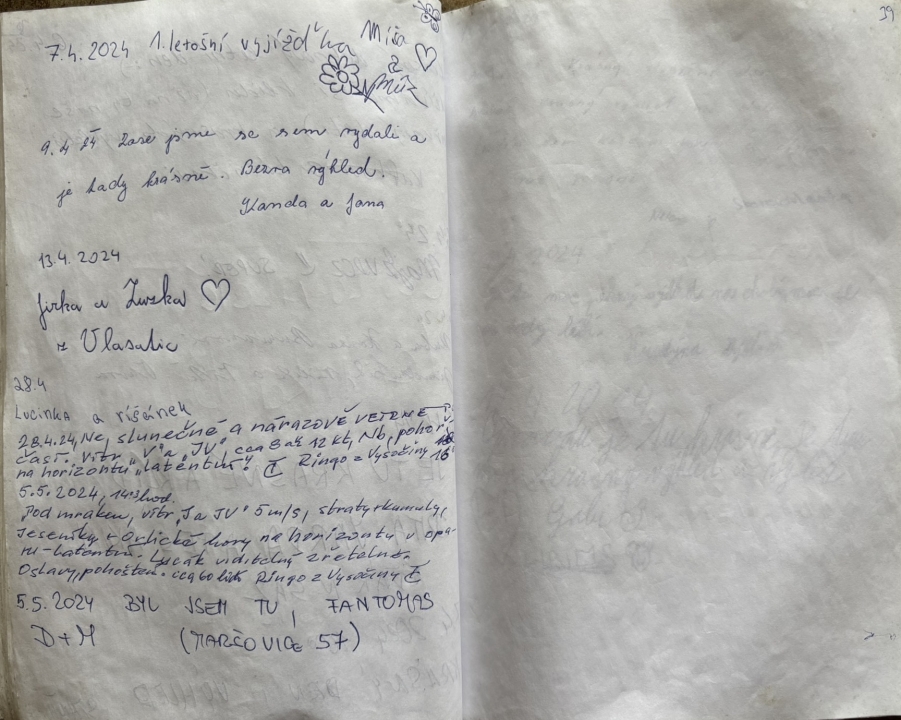 39
7.4.2024 1. letošní vyjížďka Míša
a
9.4 24 Zase jsme se sem vydali a
je tady krásně. Bezva výhled.
Vanda a Jana
13.4. 2024
Jirka a Zuzka ♡
z Vlasatic
28.4
Lucinka a ríšánek
28.4.24, Ne, slunečné a nárazově větrné
částí. Vítr „V" a „JV" cca 8 až 12 kt, Nb, pohoří
na horizontu „latentní". Ringo z Vysočiny
5.5.2024, hod.
Pod mrakem, vítr „J a JV" 5 m/s, straty + kumuly,
Jeseníky + Orlické hory na horizontu v opa-
ru - latentní. viditelný zřetelně.
Oslavy, pohoštění cca 60 lidí Ringo z Vysočiny
5.5.2024 BYL JSEM TU, FANTOMAS
D+M (MARČOVICE 57)